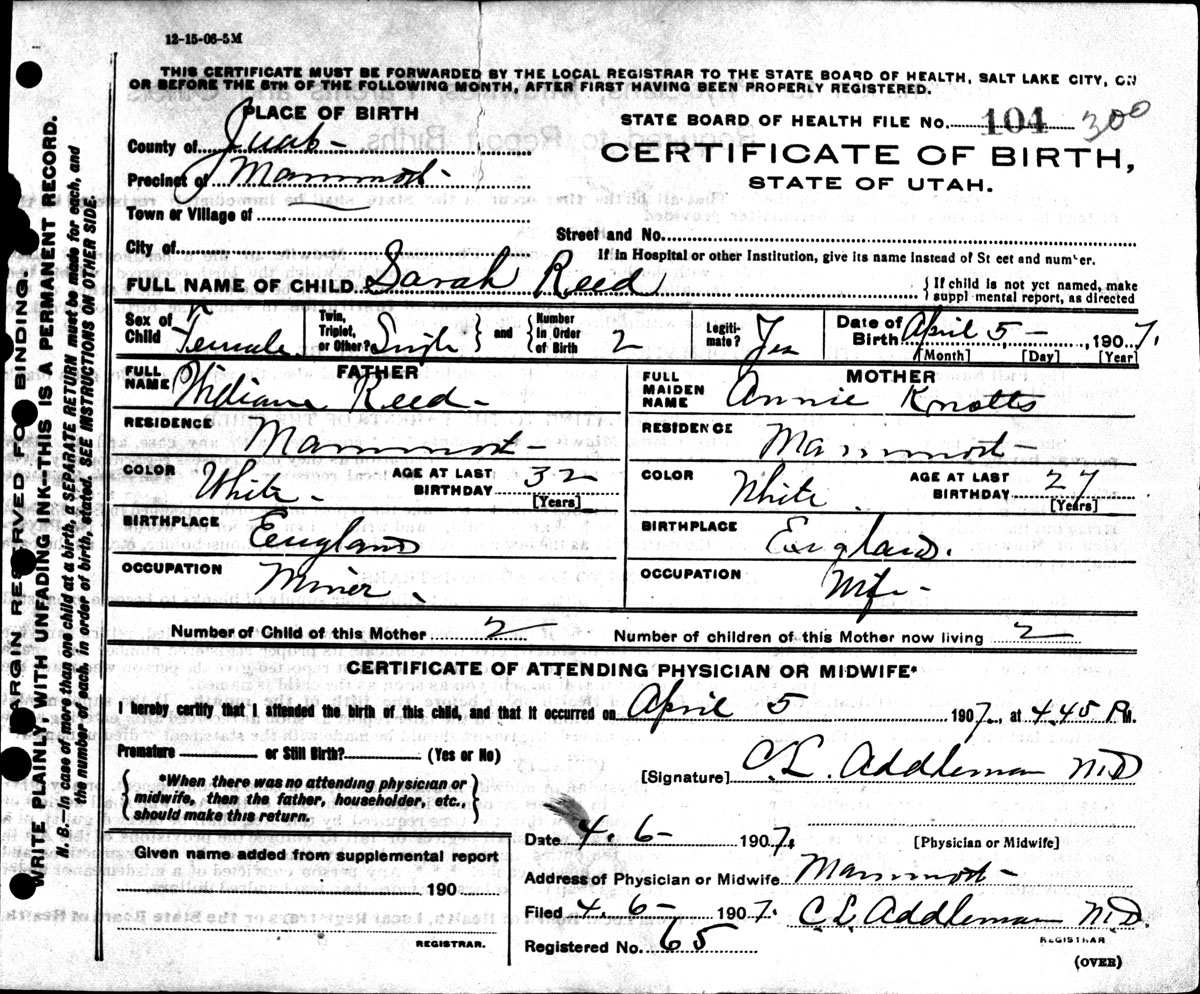 12-15-06-5M
THIS CERTIFICATE MUST BE FORWARDED BY THE LOCAL REGISTRAR TO THE STATE BOARD OF HEALTH, SALT LAKE CITY, ON
OR BEFORE THE 5TH OF THE FOLLOWING MONTH, AFTER FIRST HAVING BEEN PROPERLY REGISTERED.
PLACE OF BIRTH
County of Juab-
Precinct of Mammoth-
Town or Village of
City of
STATE BOARD OF HEALTH FILE No. 104 300
CERTIFICATE OF BIRTH,
STATE OF UTAH.
Street and No.
If in Hospital or other Institution, give its name instead of St eet and number.
FULL NAME OF CHILD Sarah Reed
If child is not yet named, make
suppl mental report, as directed
Sex of Child Female
Twin, Triplet, or Other? Single
and
Number in Order of Birth 2
Legiti-mate? Yes
Date of Birth April 5-, 1907.
[Month] [Day] [Year]
FATHER
FULL NAME William Reed-
RESIDENCE Mammoth-
COLOR White- AGE AT LAST BIRTHDAY 32
[Years]
BIRTHPLACE England
OCCUPATION Miner.
MOTHER
FULL MAIDEN NAME Annie Knotts
RESIDENCE Mammoth
COLOR White AGE AT LAST BIRTHDAY 27
[Years]
BIRTHPLACE England.
OCCUPATION Wife-
Number of Child of this Mother 2 Number of children of this Mother now living 2
CERTIFICATE OF ATTENDING PHYSICIAN OR MIDWIFE*
I hereby certify that I attended the birth of this child, and that it occurred on April 5 1907, at 4.45 P M.
Premature or Still Birth? (Yes or No)
*When there was no attending physician or
midwife, then the father, householder, etc.,
should make this return.
[Signature] C. L. Addleman M.D
Date 4. 6- 1907. [Physician or Midwife]
Given name added from supplemental report
190
REGISTRAR.
Address of Physician or Midwife Mammoth-
Filed 4.6- 1907. C L Addleman M.D.
REGISTRAR
Registered No. 65
(OVER)
MARGIN RESERVED FOR BINDING.
WRITE PLAINLY, WITH UNFADING INK—THIS IS A PERMANENT RECORD.
N. B.—In case of more than one child at a birth, a SEPARATE RETURN must be made for each, and
the number of each, in order of birth, stated. SEE INSTRUCTIONS ON OTHER SIDE.